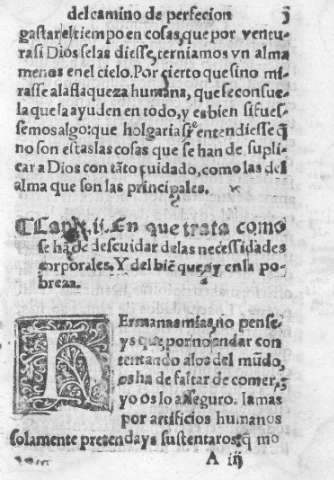 del camino de perfecion 3
gastar el tiempo en cosas, que por ventu-
ra si Dios se las diesse, terniamos vn alma
menos en el cielo. Por cierto que sino mi-
rasse a la flaqueza humana, que se consue-
la que la ayuden en todo, y es bien si fues-
semos algo: que holgaria se entendiesse q̃
no son estas las cosas que se han de supli-
car a Dios con tãto cuidado, como las del
alma que son las principales.
¶ Cap. ij. En que trata como
se ha de descuidar de las necessidades
corporales. Y del biẽ que ay en la po-
breza.
HErmanas mias, no pense
ys que por no andar con
tentando a los del mũdo,
os ha de faltar de comer, q̃
yo os lo asseguro. Iamas
por artificios humanos
solamente pretendays sustentaros, q̃ mo
A iij